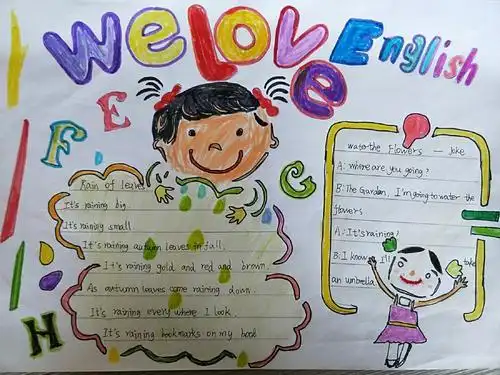 We Love English
E
F
G
H
Rain of leaves
It's raining big.
It's raining small.
It's raining autumn leaves in fall.
It's raining gold and red and brown.
As autumn leaves come raining down.
It's raining every where I look.
It's raining bookmarks on my book
water the Flowers — Joke
A: where are you going?
B: The Garden, I'm going to water the
flowers
A: It's raining!
B: I know I'll take
an umbrella.